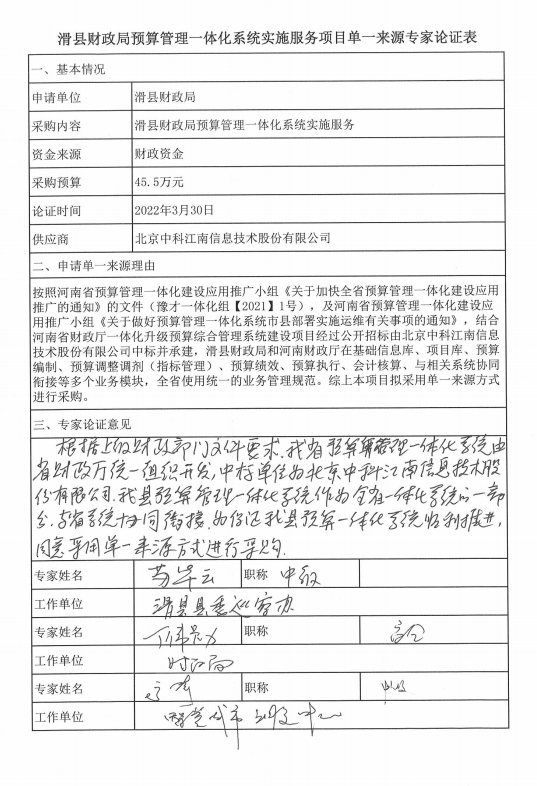 滑县财政局预算管理一体化系统实施服务项目单一来源专家论证表
一、基本情况
申请单位 滑县财政局
采购内容 滑县财政局预算管理一体化系统实施服务
资金来源 财政资金
采购预算 45.5万元
论证时间 2022年3月30日
供应商 北京中科江南信息技术股份有限公司
二、申请单一来源理由
按照河南省预算管理一体化建设应用推广小组《关于加快全省预算管理一体化建设应用
推广的通知》的文件（豫才一体化组【2021】1号），及河南省预算管理一体化建设应
用推广小组《关于做好预算管理一体化系统市县部署实施运维有关事项的通知》，结合
河南省财政厅一体化升级预算综合管理系统建设项目经过公开招标由北京中科江南信息
技术股份有限公司中标并承建，滑县财政局和河南财政厅在基础信息库、项目库、预算
编制、预算调整调剂（指标管理）、预算绩效、预算执行、会计核算、与相关系统协同
衔接等多个业务模块，全省使用统一的业务管理规范。综上本项目拟采用单一来源方式
进行采购。
三、专家论证意见
根据上级财政部门文件要求，我省预算管理一体化系统由
省财政厅统一组织开发，中标单位为北京中科江南信息技术股
份有限公司。我县预算管理一体化系统作为全省一体化系统的一部
分，与省系统协同衔接，为保证我县预算一体化系统顺利推进，
同意采用单一来源方式进行采购.
专家姓名 职称 中级
工作单位 滑县县委巡察办
专家姓名 职称
工作单位 财政局
专家姓名 职称
工作单位 中心